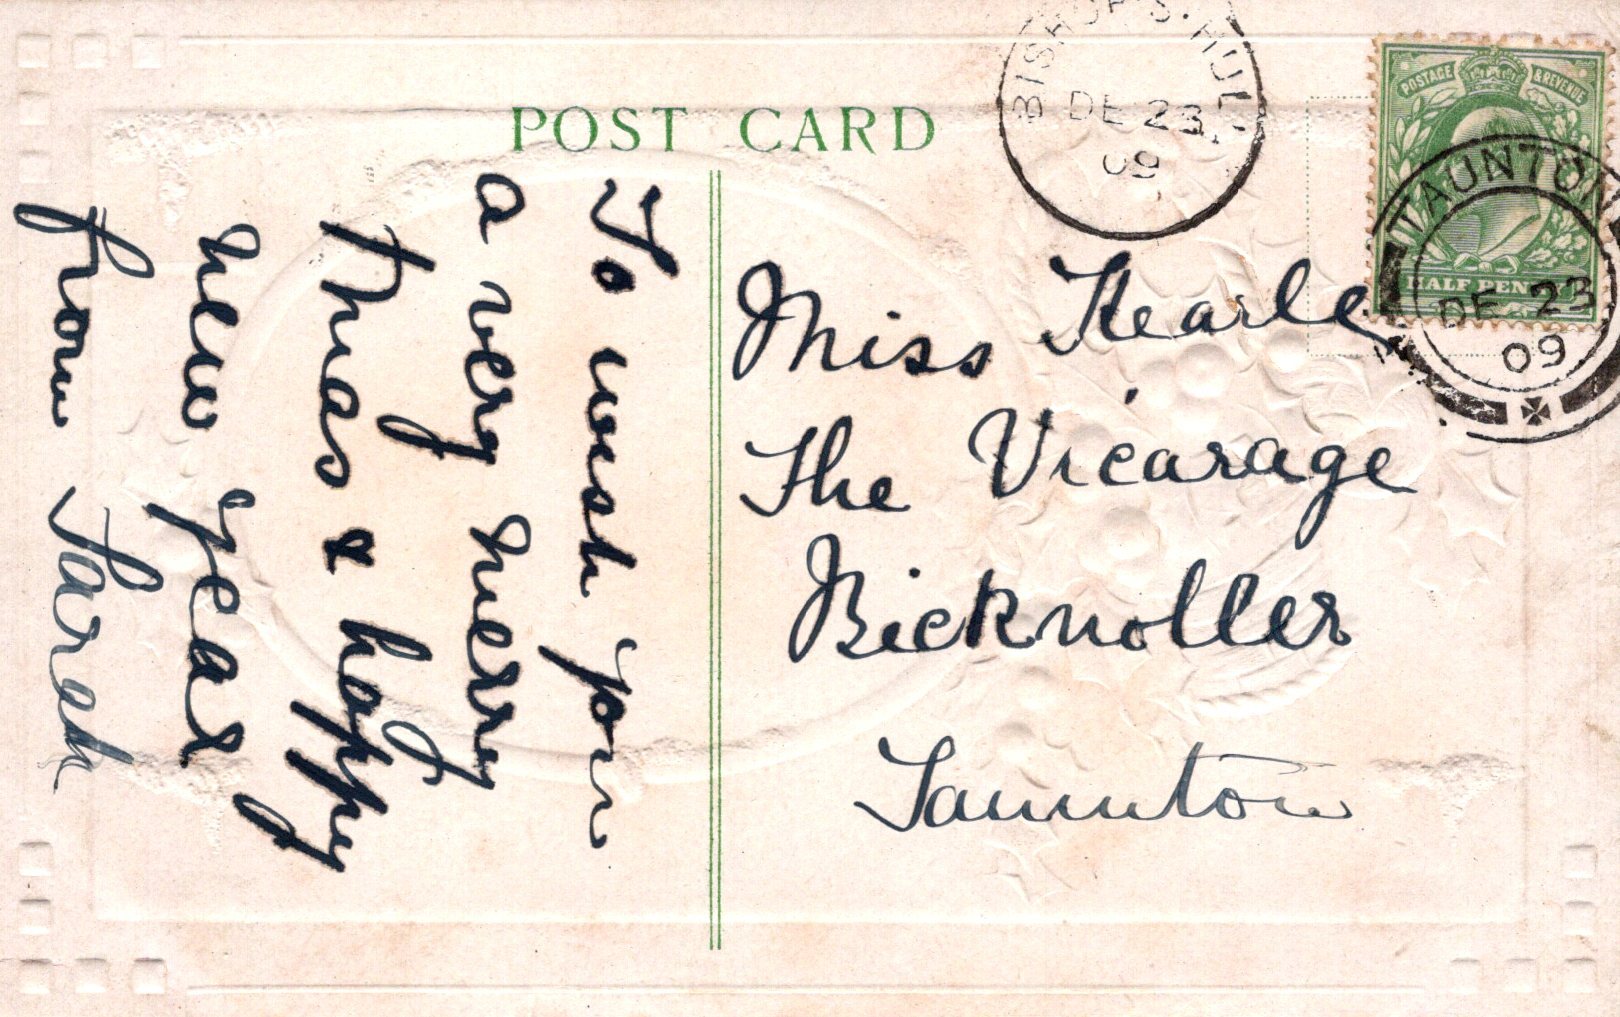 POST CARD
To wish you
a very merry
Xmas & happy
new year
from Sarah
Miss Hearle
The Vicarage
Bicknoller
Taunton
BISHOP'S. HULL
DE 23
09
POSTAGE & REVENUE
HALF PENNY
TAUNTON
DE 23
09